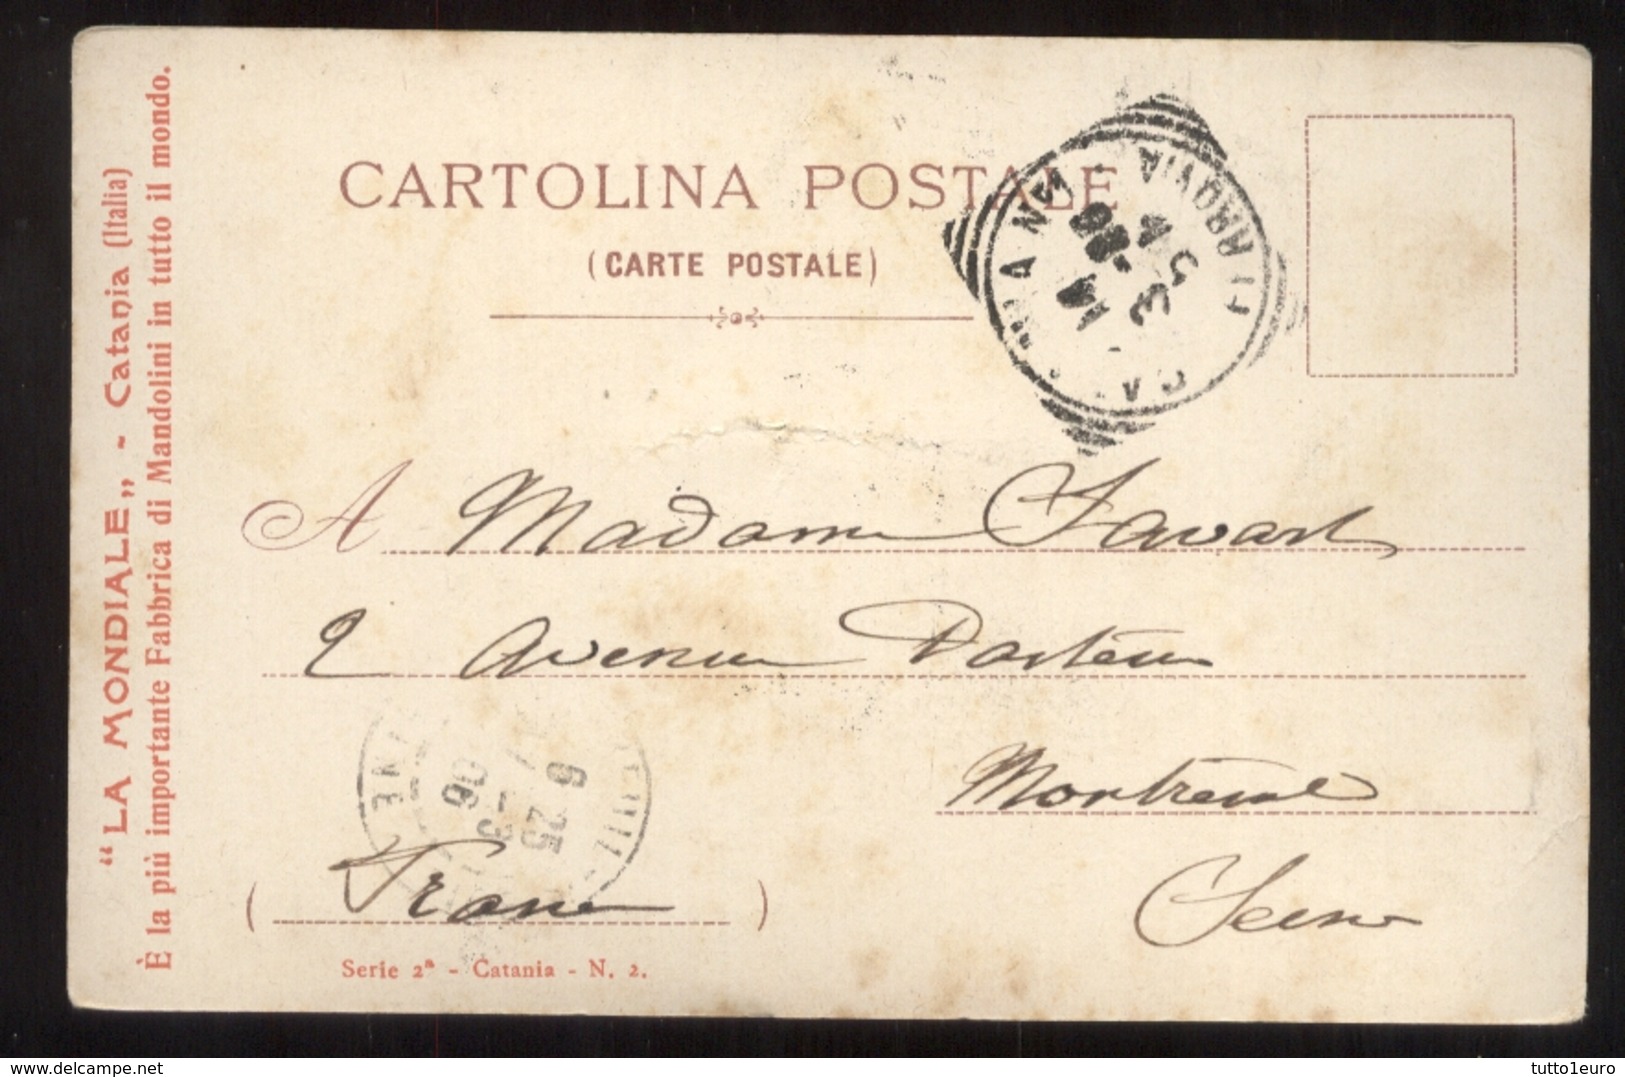 "LA MONDIALE„ - Catania (Italia)
È la più importante Fabbrica di Mandolini in tutto il mondo.
CARTOLINA POSTALE
(CARTE POSTALE)
FERROVIA
A Madame Savart
2 Avenue Pasteur
Montreuil
Seine
(France)
6 25
-3
06
Serie 2ª - Catania - N. 2.
delcampe.net
tutto1euro